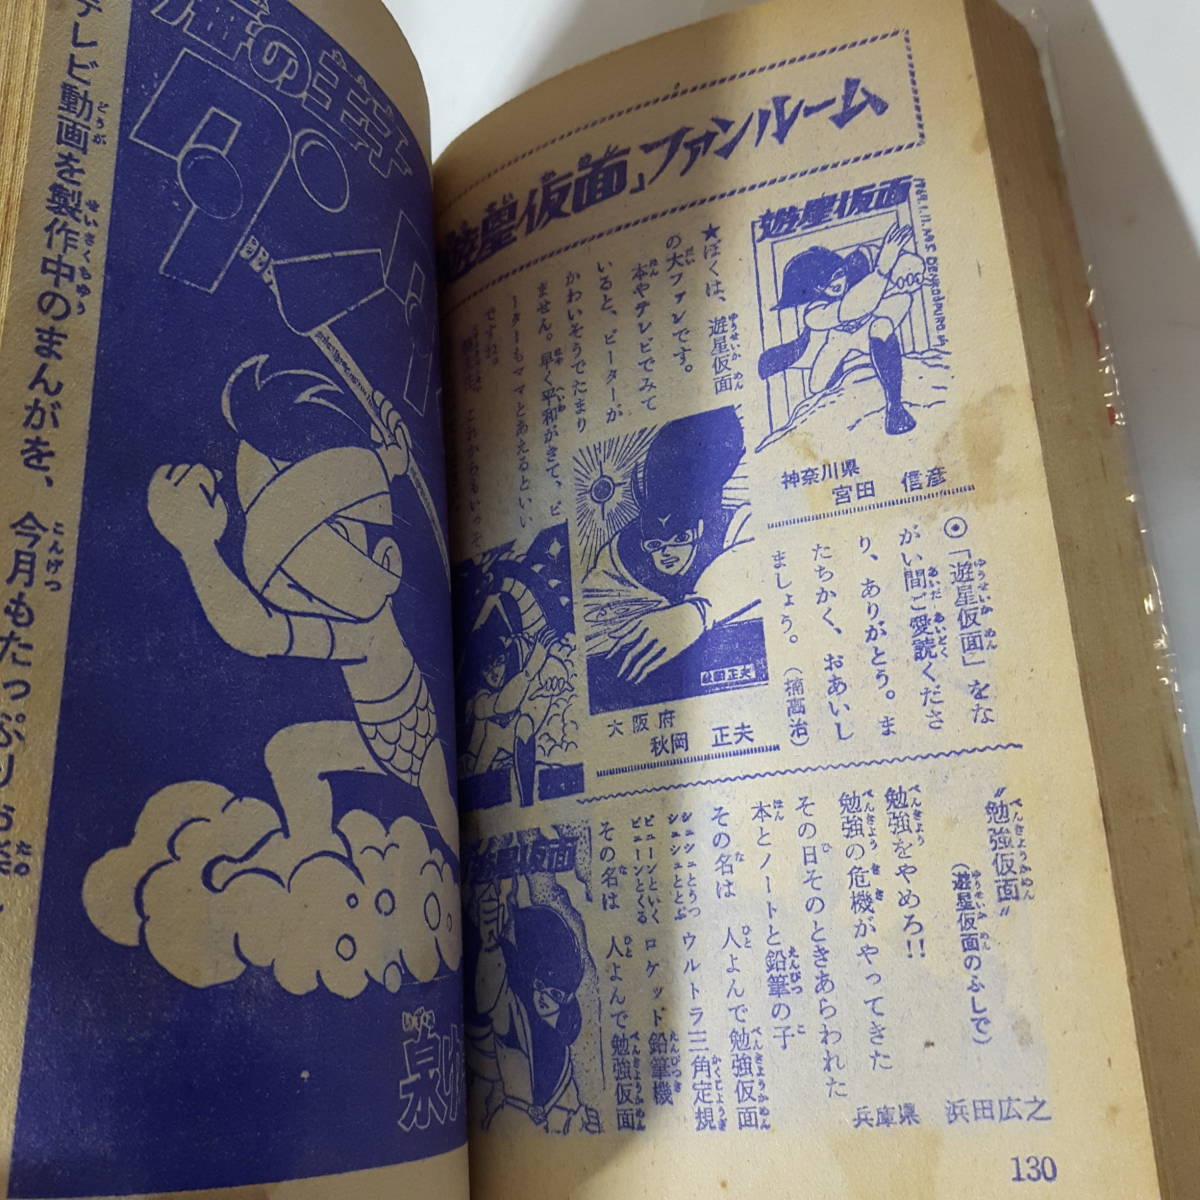 「遊星仮面」ファンルーム
遊星仮面
神奈川県
宮田 信彦
★ぼくは、遊星仮面
の大ファンです。
本やテレビでみて
いると、ピーターが
かわいそうでたまり
ません。早く平和がきて、ピ
ーターもママとあえるといい
ですね。
大阪府
秋岡 正夫
秋岡正夫
◉「遊星仮面」をな
がい間ご愛読くださ
り、ありがとう。ま
たちかく、おあいし
ましょう。(楠高治)
“勉強仮面”
(遊星仮面のふしで)
兵庫県 浜田広之
勉強をやめろ!!
勉強の危機がやってきた
その日そのときあらわれた
本とノートと鉛筆の子
その名は 人よんで勉強仮面
シュシュとうつ
シュシュととぶ
ウルトラ三角定規
ビューンといく
ビューンとくる
ロケット鉛筆機
その名は 人よんで勉強仮面
遊星仮面
130
の王子
テレビ動画を製作中のまんがを、今月もたっぷりお楽
泉ゆ